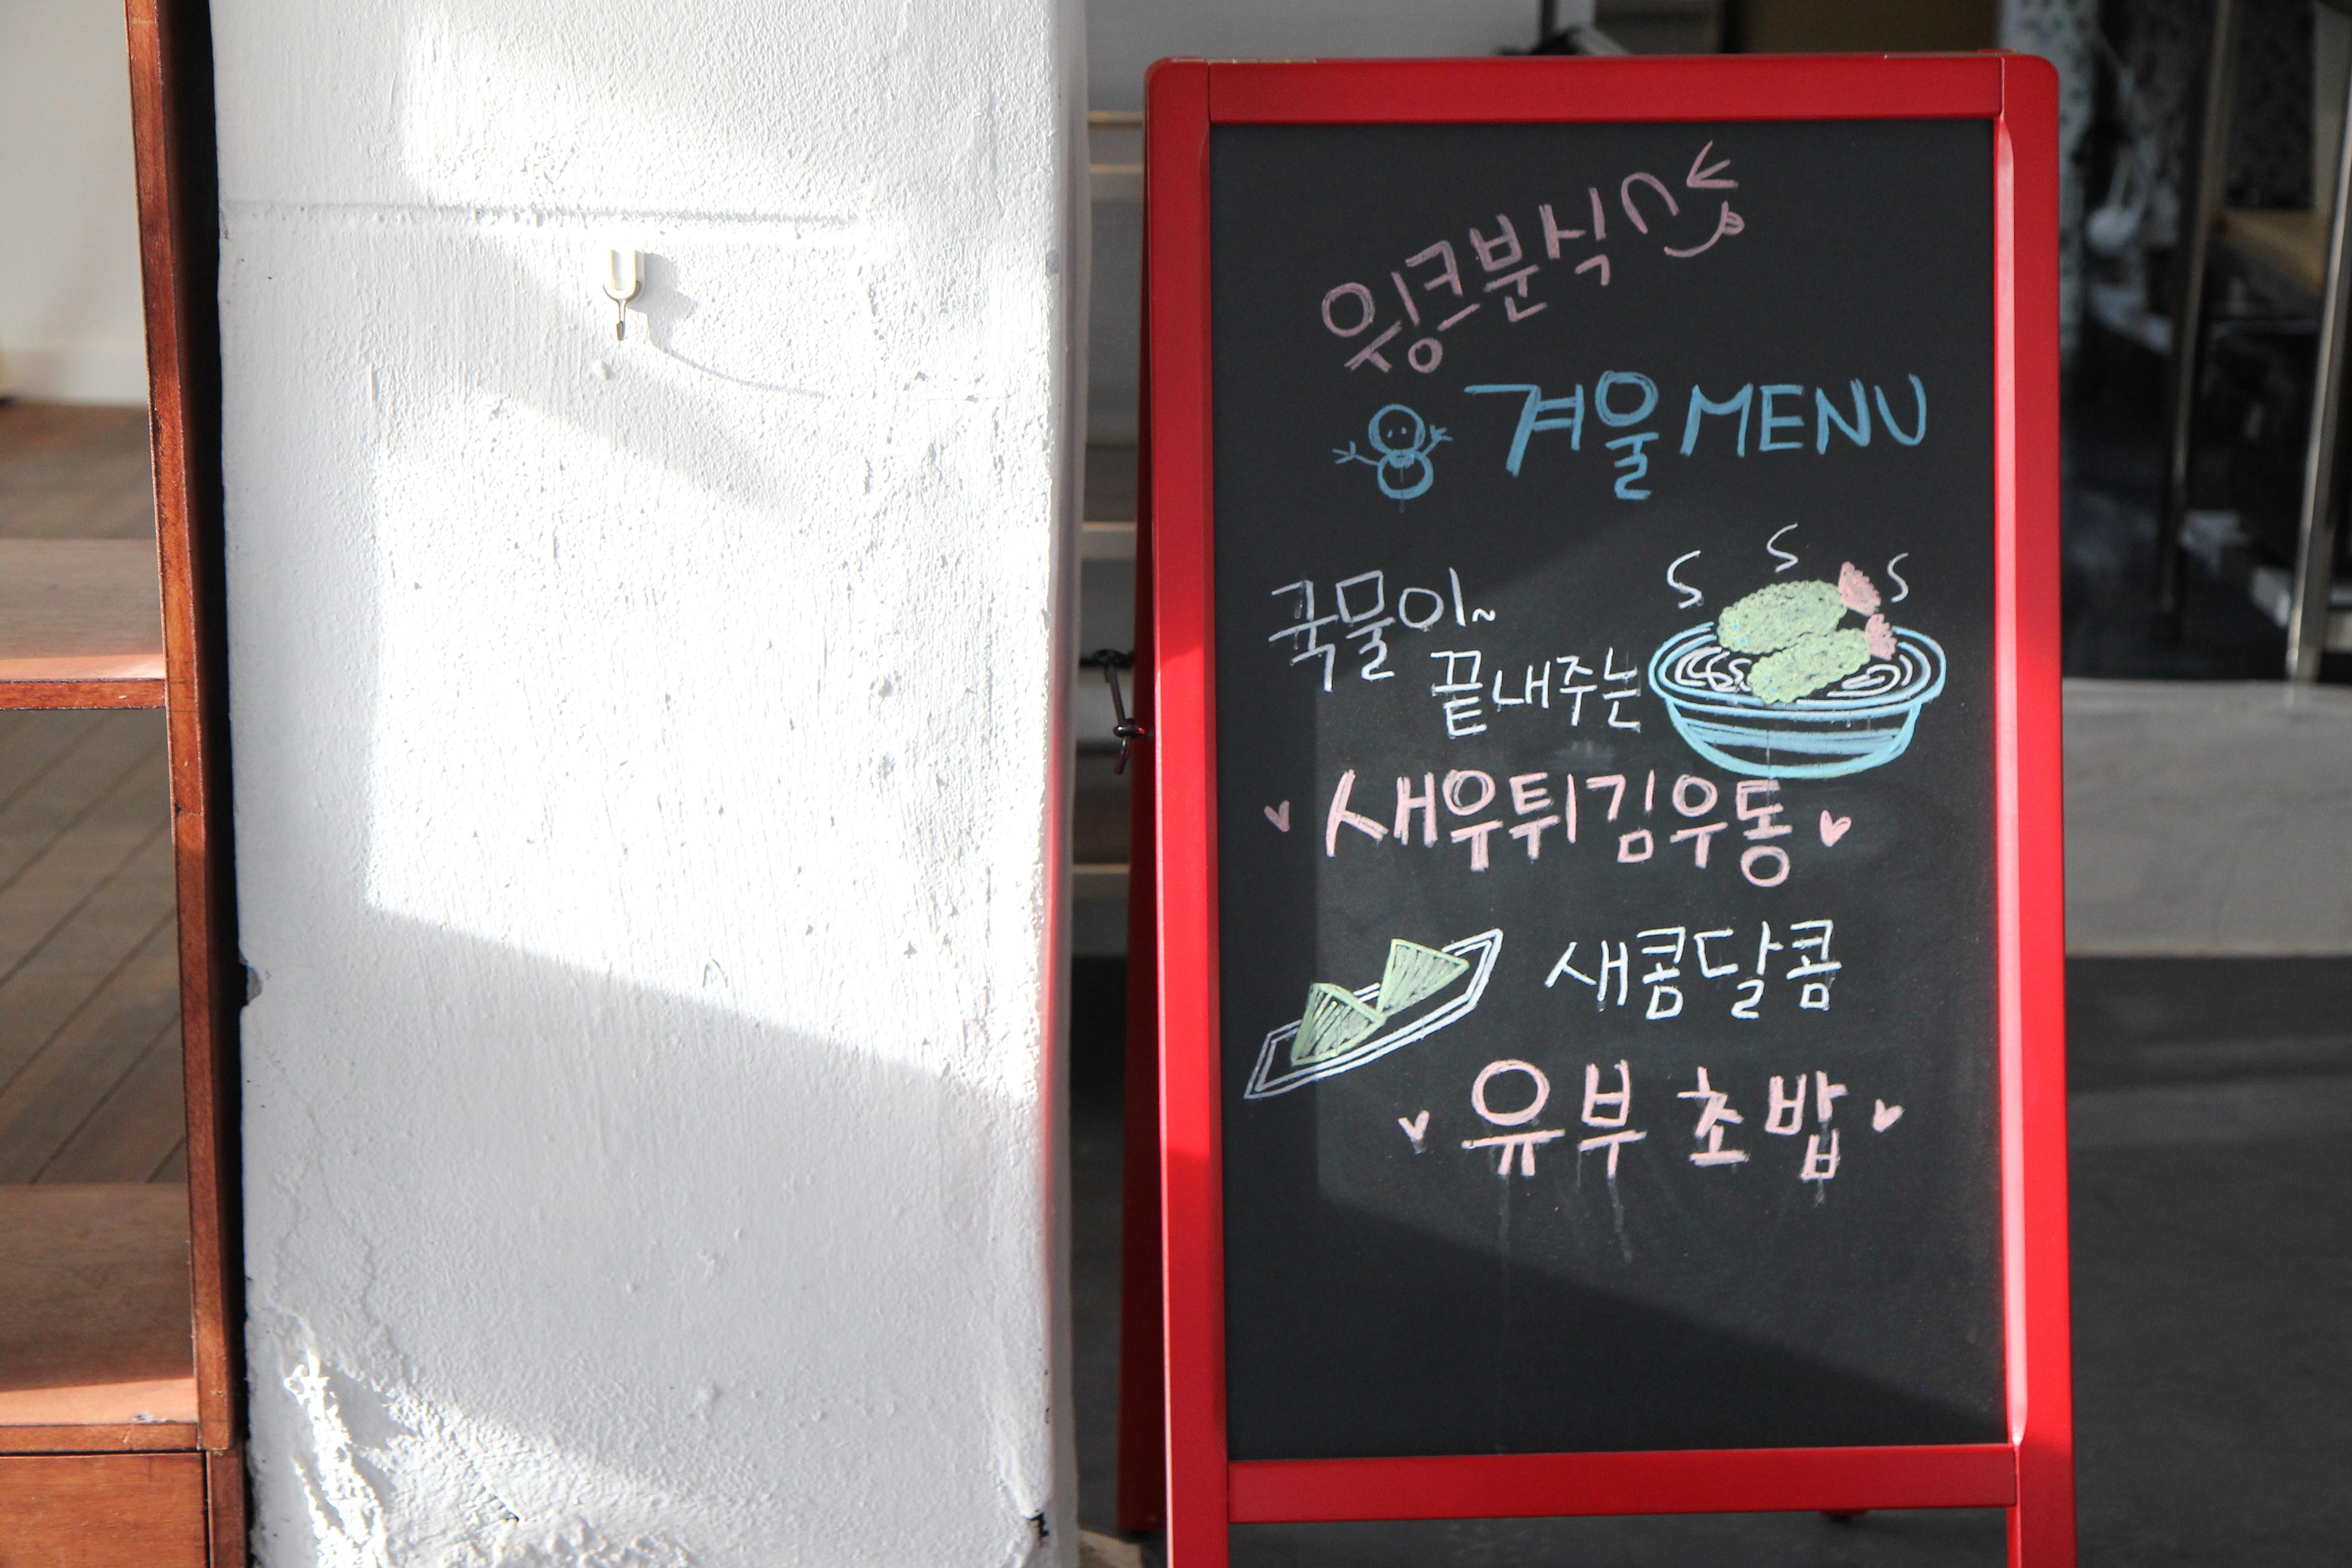 윙크분식
겨울 MENU
국물이~
끝내주는
새우튀김우동
새콤달콤
유부초밥